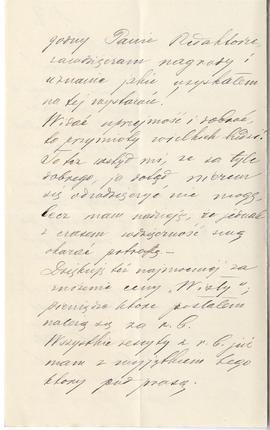 godny Panie Redaktorze,
zawdzięczam nagrody i
uznanie jakie uzyskałem
na tej wystawie.
Widać uprzejmość i dobroć,
to przymioty wielkich ludzi!
To też wstyd mi, że za tyle
dobrego, ja dotąd niczem
się odwdzięczyć nie mogę,
lecz mam nadzieję, że jednak
z czasem wdzięczność swą
okazać potrafię.—
Dziękuję też najmocniej za
zniżenie ceny „Wisły",
pieniądze które posłałem
należą się za r. b.
Wszystkie zeszyty z r. b. już
mam z wyjątkiem tego
który pod prasą.